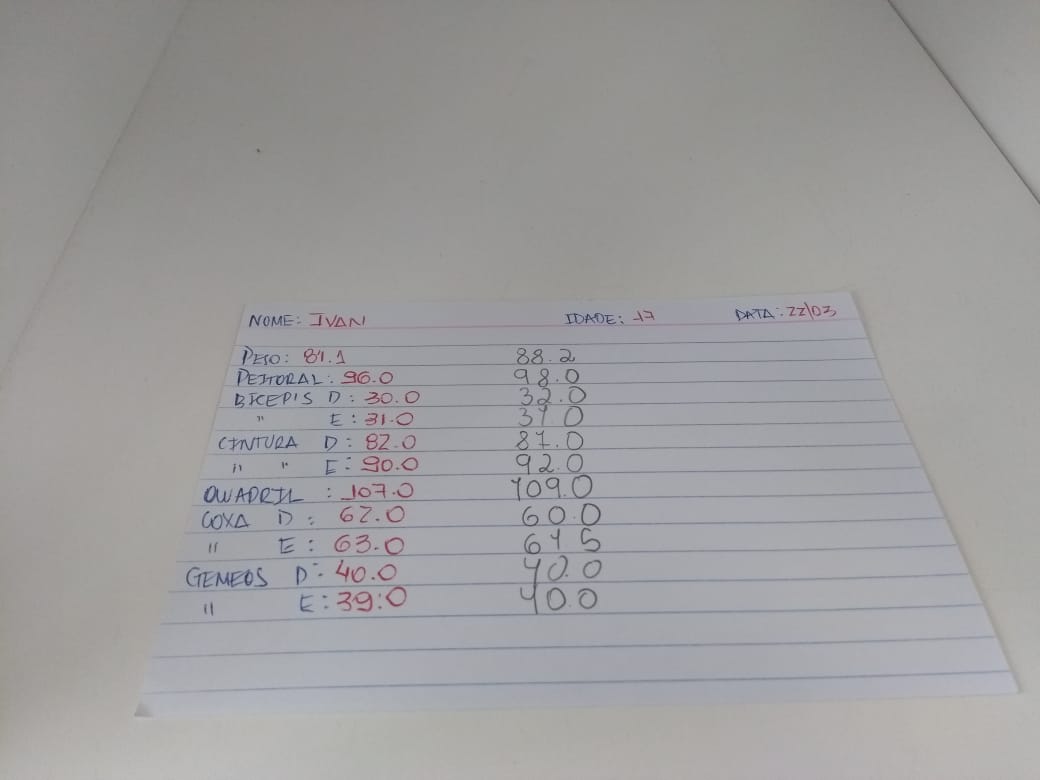 NOME: IVAN IDADE: 17 DATA: 22/03
PESO: 81.1 88.2
PEITORAL: 96.0 98.0
BICEPIS D: 30.0 32.0
" E: 31.0 31 0
CINTURA D: 82.0 87.0
" " E: 90.0 92.0
QUADRIL: 107.0 109.0
COXA D: 62.0 60.0
" E: 63.0 61 5
GEMEOS D: 40.0 40.0
" E: 39.0 40.0